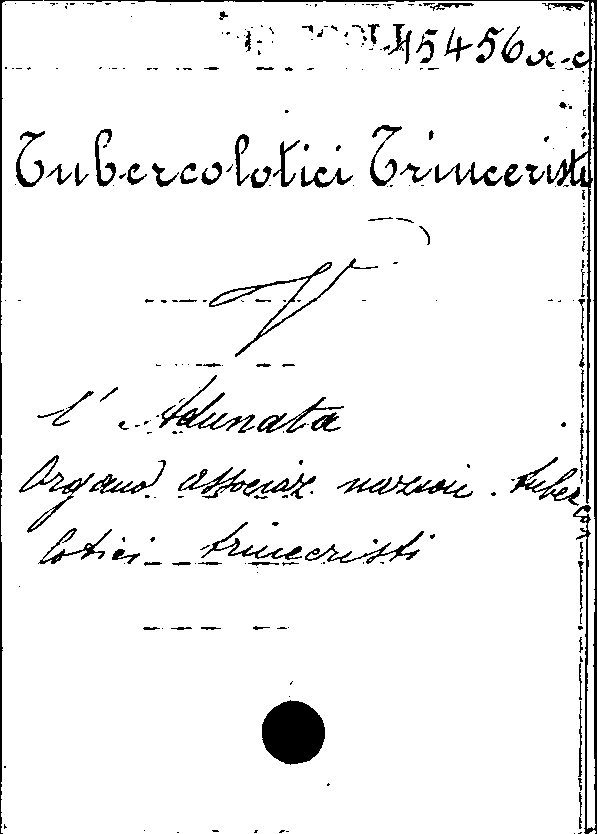 15456 a-c
Tubercolotici Trinceristi
V
l' Adunata
Organo associaz. nazion. tuberco
lotici trinceristi